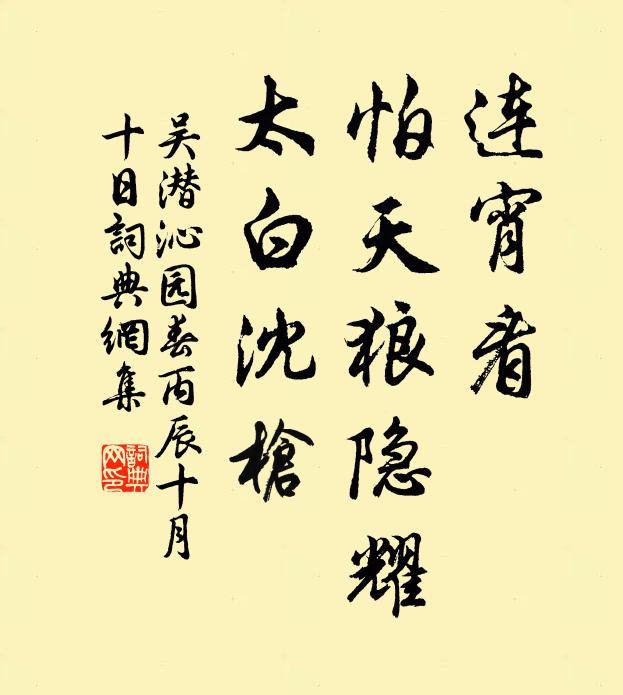 连宵看
怕天狼隐耀
太白沈槍
吴潜沁园春丙辰十月
十日詞典網集
詞典
网印